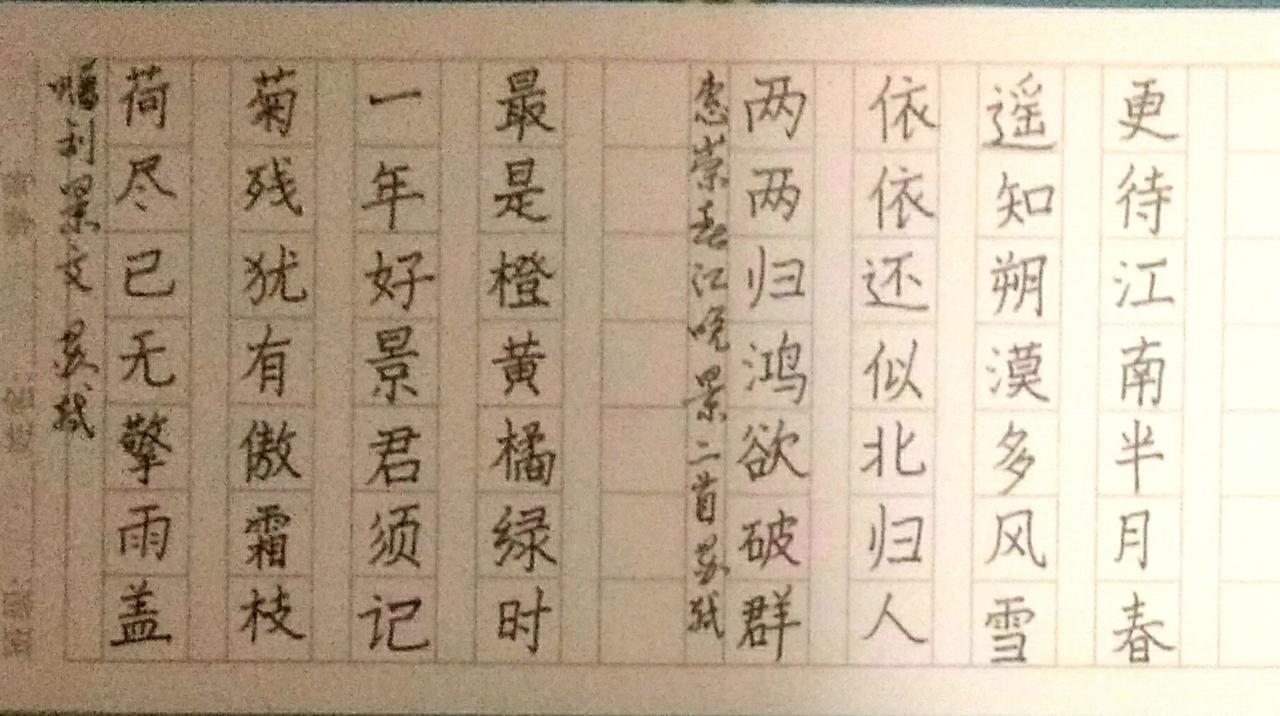 赠刘景文 苏轼
荷尽已无擎雨盖
菊残犹有傲霜枝
一年好景君须记
最是橙黄橘绿时
惠崇春江晚景二首 苏轼
两两归鸿欲破群
依依还似北归人
遥知朔漠多风雪
更待江南半月春